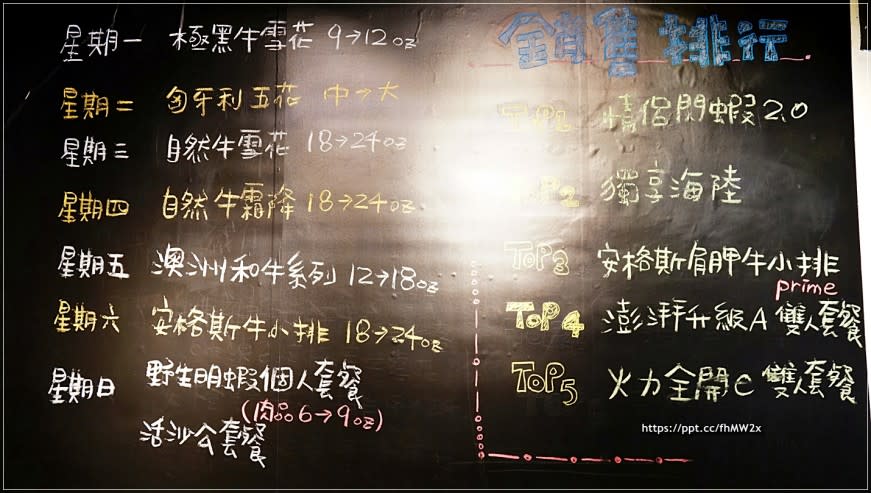 星期一 極黑牛雪花 9→12oz
星期二 匈牙利五花 中→大
星期三 自然牛雪花 18→24oz
星期四 自然牛霜降 18→24oz
星期五 澳洲和牛系列 12→18oz
星期六 安格斯牛小排 18→24oz
星期日 野生明蝦個人套餐
(肉品6→9oz)
活沙公套餐
銷售排行
ToP1 情侶閃蝦2.0
ToP2 獨享海陸
ToP3 安格斯肩胛牛小排
prime
ToP4 澎湃升級A 雙人套餐
ToP5 火力全開C 雙人套餐
https://ppt.cc/fhMW2x